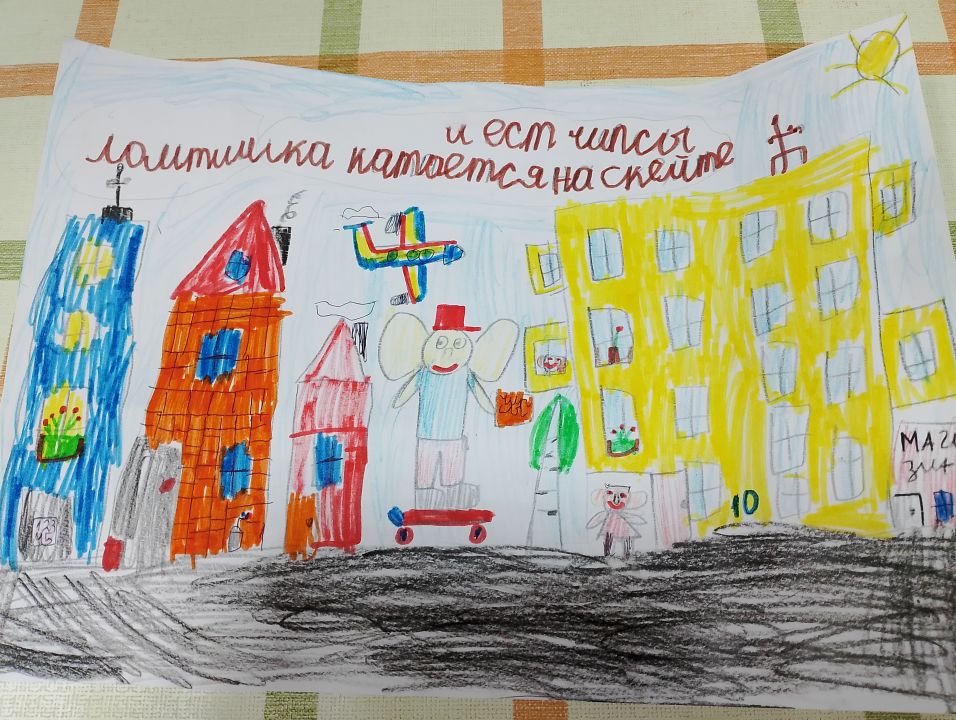 ломтишка катается на скейте
и ест чипсы
10
МАГА
ЗИН